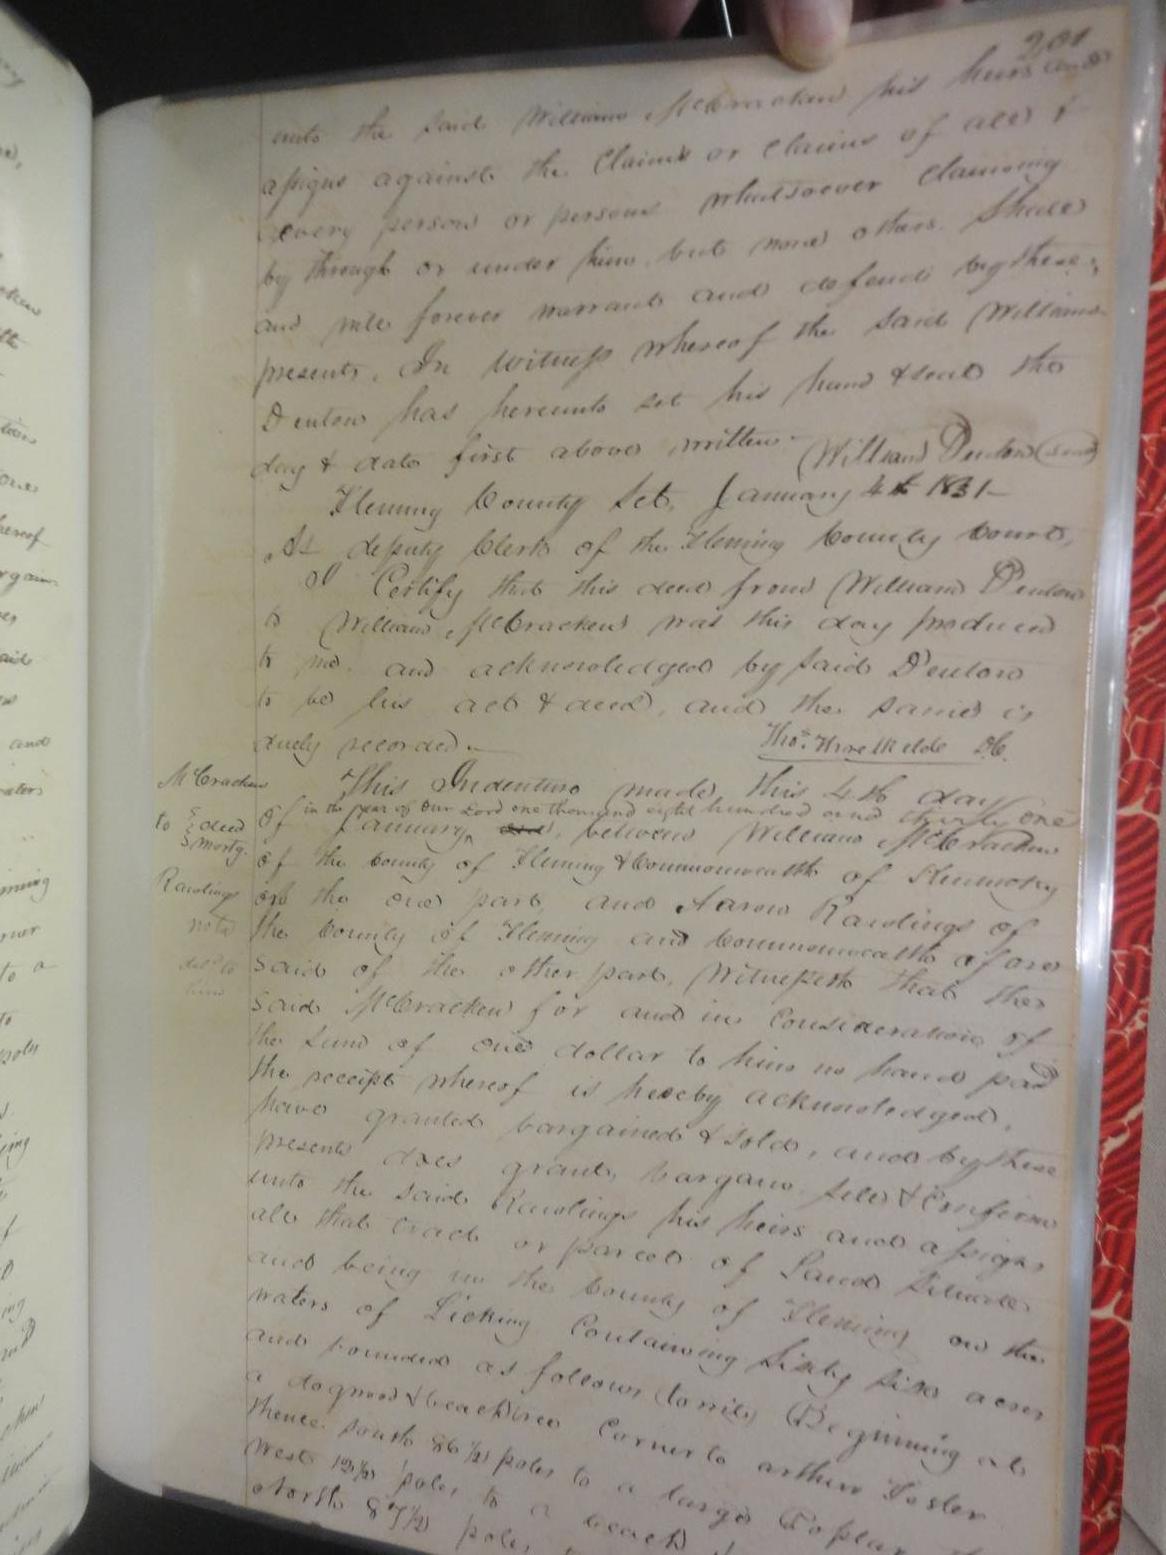 201
unto the said William McCracken his heirs and
assigns against the Claims or claims of all &
every person or persons whatsoever claiming
by through or under him but none others. Shall
and will forever warrant and defend by these
presents, In witness whereof the said William
Denton has hereunto set his hand & seal the
day & date first above written
William Denton (seal)
Fleming County Sct. January 4th 1831
As deputy Clerk of the Fleming County Court,
I Certify that this deed from William Denton
to William McCracken was this day produced
to me and acknowledged by said Denton
to be his act & deed, and the same is
duly recorded
Thos. Threlkilde DC.
McCracken
to deed
morty.
Rawlings
note
deld to
him
This Indenture made this 4th day
in the year of our Lord one thousand eight hundred and thirty one
of January, between William McCracken
of the County of Fleming & Commonwealth of Kentucky
of the one part, and Aaron Rawlings of
the County of Fleming and Commonwealth afore
said of the other part, Witnesseth that the
said McCracken for and in Consideration of
the sum of one dollar to him in hand paid
the receipt whereof is hereby acknowledged,
have granted bargained & sold, and by these
presents does grant, bargain, sell & Confirm
unto the said Rawlings his heirs and assigns
all that tract or parcel of Land Situate
and being in the County of Fleming on the
waters of Licking Containing Sixty Six acres
and bounded as follows (towit) Beginning at
a dogwood & beach tree Corner to arthur Foster
thence South 86 1/2 poles to a large Poplar
West 121/2 poles to a beach
North 87 1/2 poles